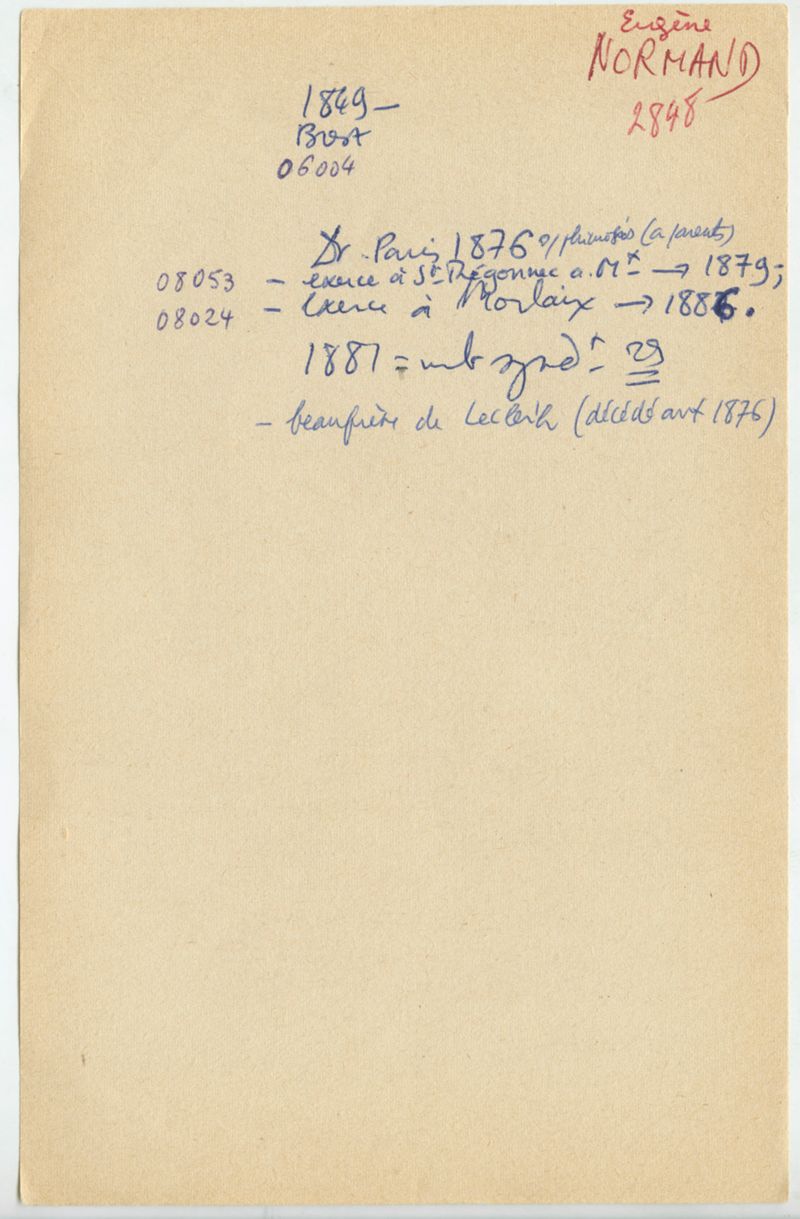 Eugène
NORMAND
2848
1849 –
Brest
06004
Dr. Paris 1876 s/ phimosis (a parents)
08053 – exerce à St Thégonnec a. Mx → 1879;
08024 – Exerce à Morlaix → 1886.
1881 = mb synd t 29
– beaufrère de Lecleih (décédé avt 1876)